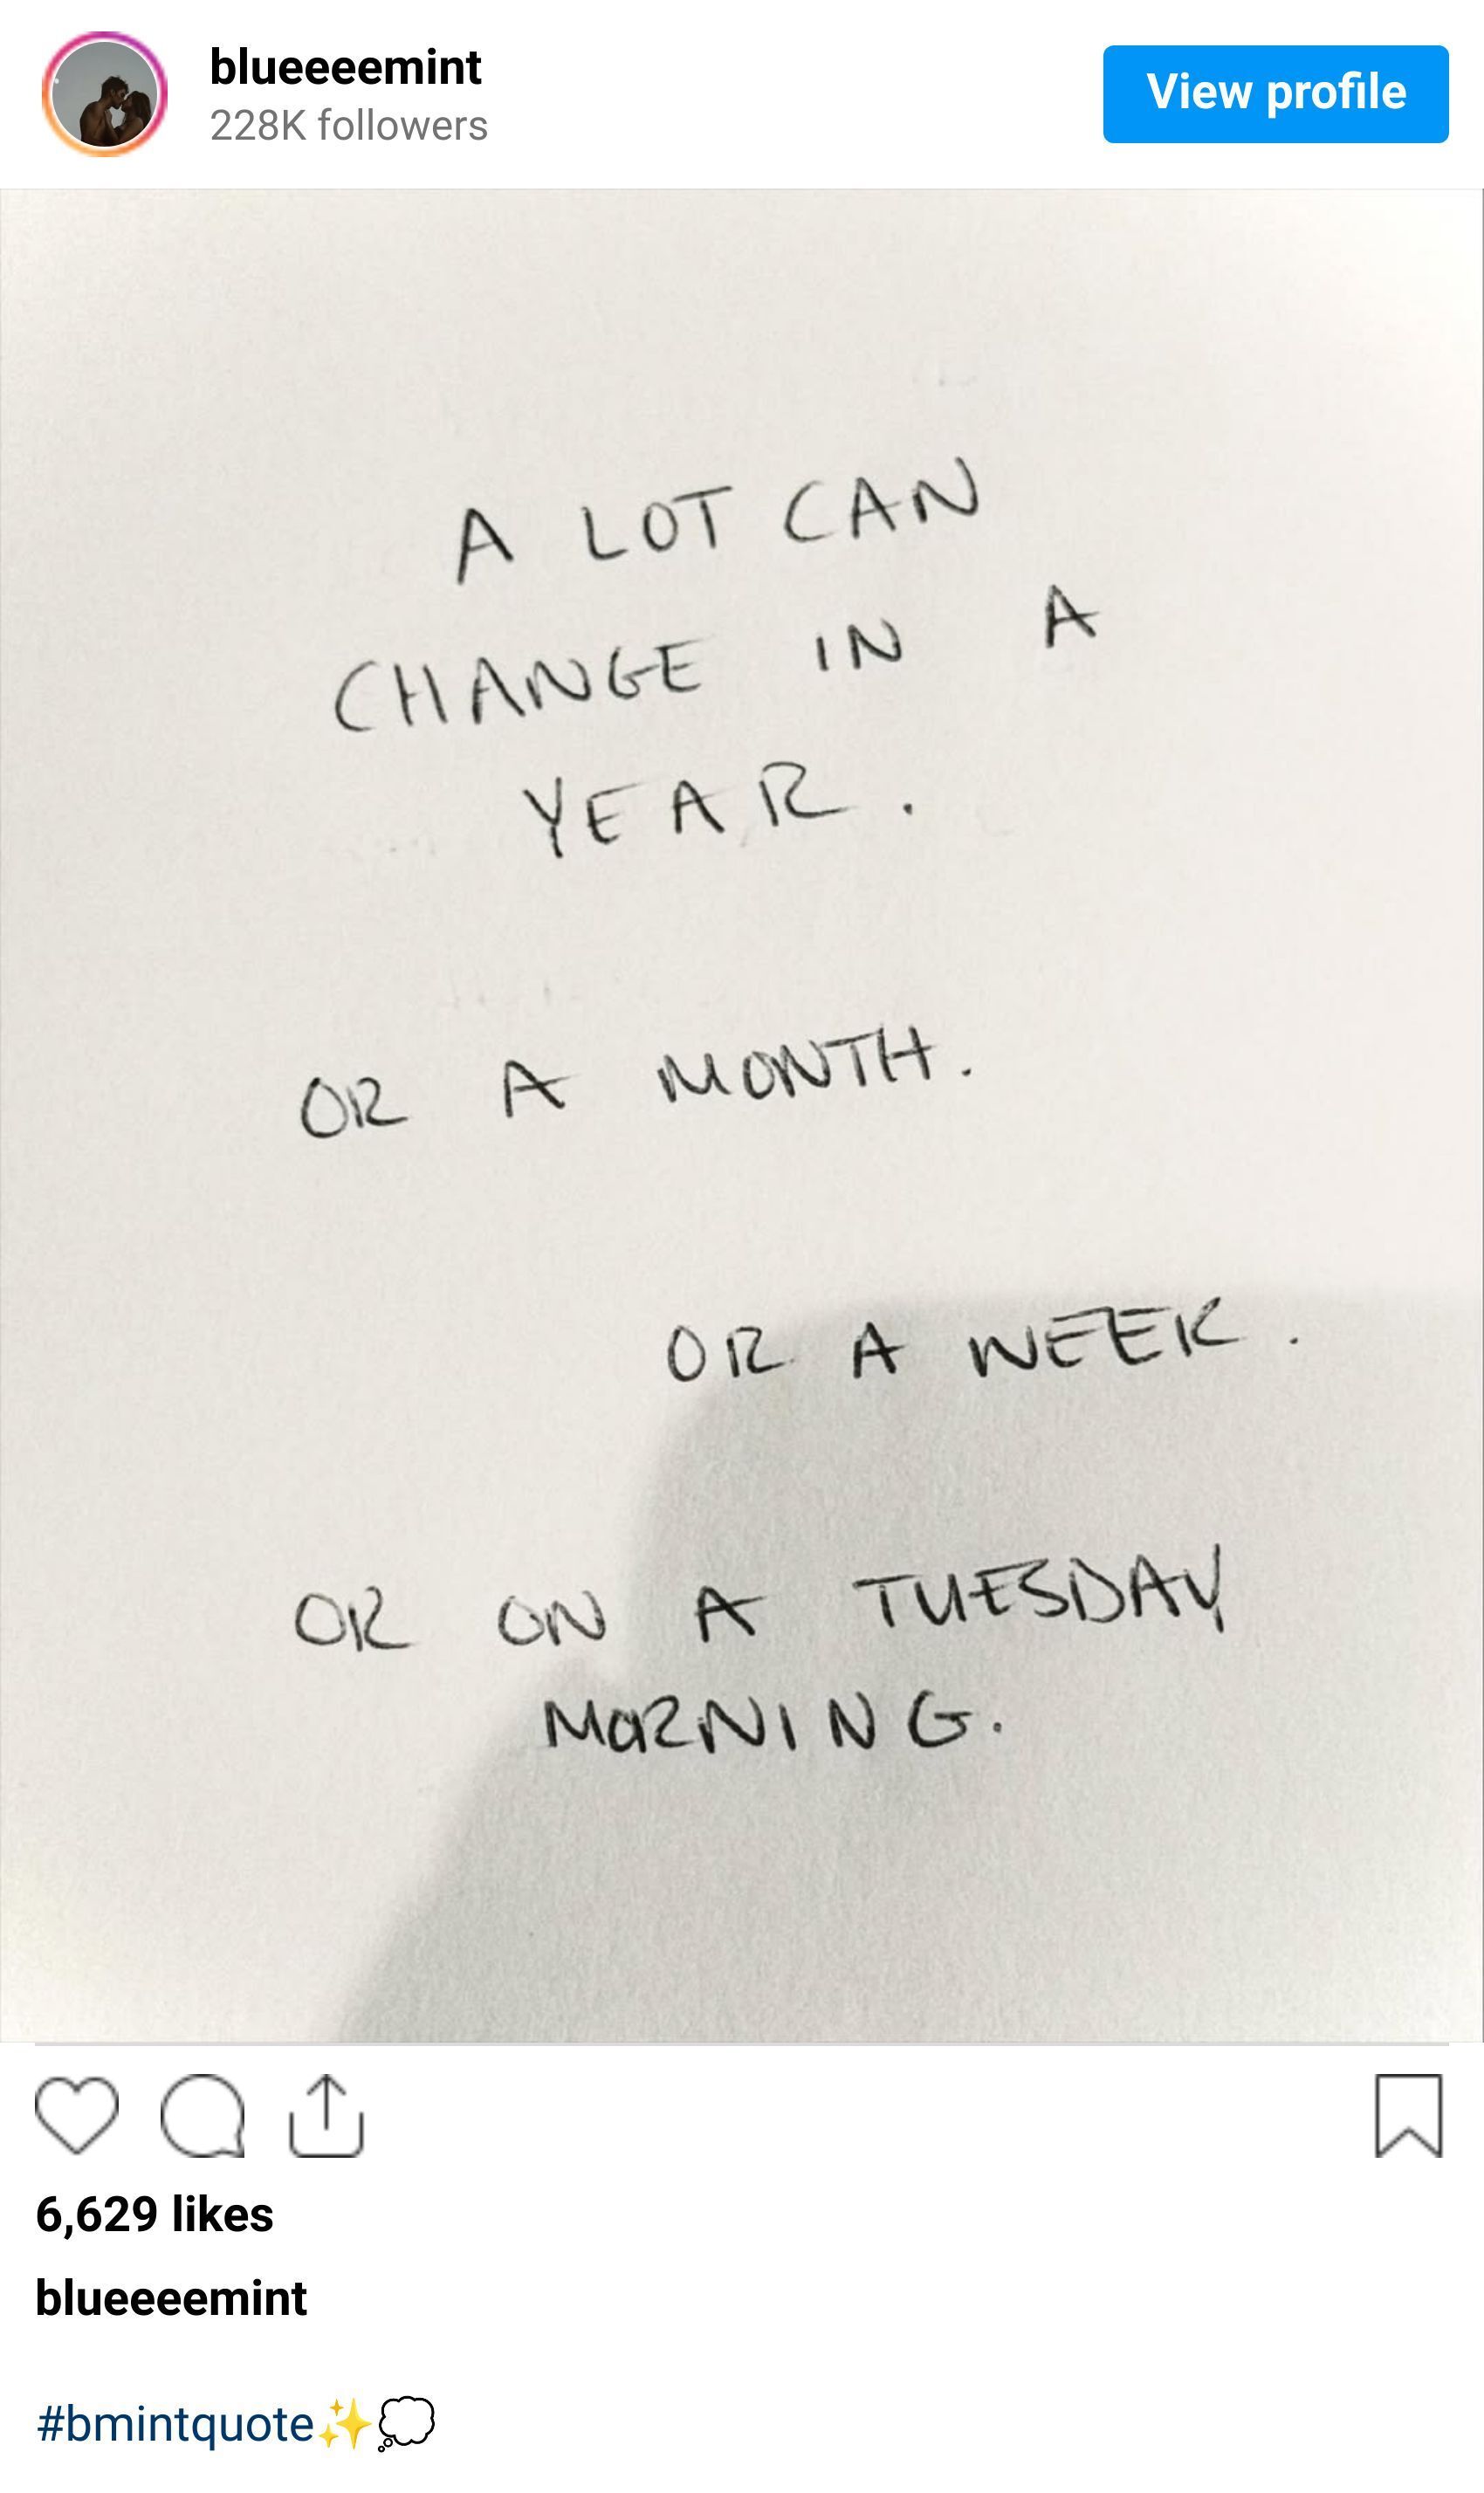 blueeeemint
228K followers
View profile
A LOT CAN
CHANGE IN A
YEAR.
OR A MONTH.
OR A WEEK.
OR ON A TUESDAY
MORNING.
6,629 likes
blueeeemint
#bmintquote✨💭